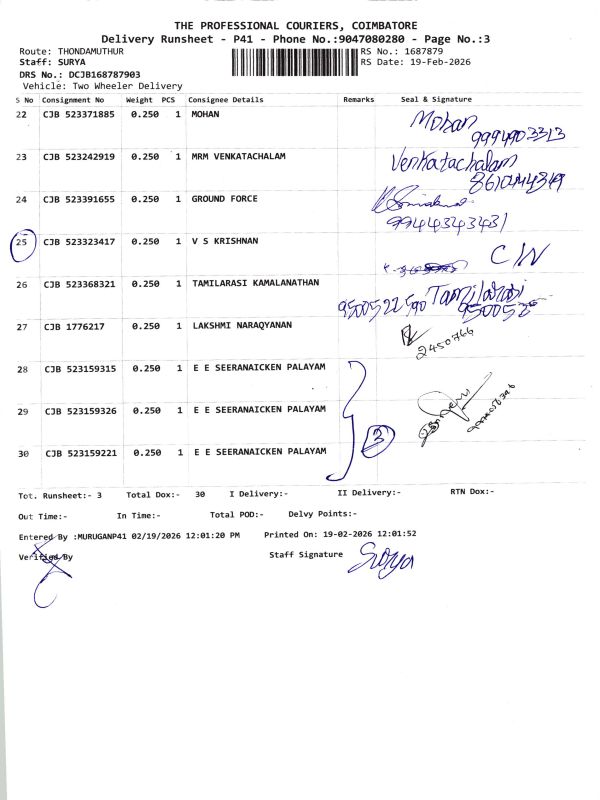 THE PROFESSIONAL COURIERS, COIMBATORE
Delivery Runsheet - P41 - Phone No.:9047080280 - Page No.:3
Route: THONDAMUTHUR
RS No.: 1687879
Staff: SURYA
RS Date: 19-Feb-2026
DRS No.: DCJB168787903
Vehicle: Two Wheeler Delivery
S No Consignment No Weight PCS Consignee Details Remarks Seal & Signature
22 CJB 523371885 0.250 1 MOHAN Mohan
9994903313
23 CJB 523242919 0.250 1 MRM VENKATACHALAM Venkatachalam
24 CJB 523391655 0.250 1 GROUND FORCE
9944343431
25 CJB 523323417 0.250 1 V S KRISHNAN C/N
26 CJB 523368321 0.250 1 TAMILARASI KAMALANATHAN Tamilarasi
9500522590 950052
27 CJB 1776217 0.250 1 LAKSHMI NARAQYANAN
2450766
28 CJB 523159315 0.250 1 E E SEERANAICKEN PALAYAM
29 CJB 523159326 0.250 1 E E SEERANAICKEN PALAYAM
3
30 CJB 523159221 0.250 1 E E SEERANAICKEN PALAYAM
Tot. Runsheet:- 3 Total Dox:- 30 I Delivery:- II Delivery:- RTN Dox:-
Out Time:- In Time:- Total POD:- Delvy Points:-
Entered By :MURUGANP41 02/19/2026 12:01:20 PM Printed On: 19-02-2026 12:01:52
Verified By Staff Signature Surya